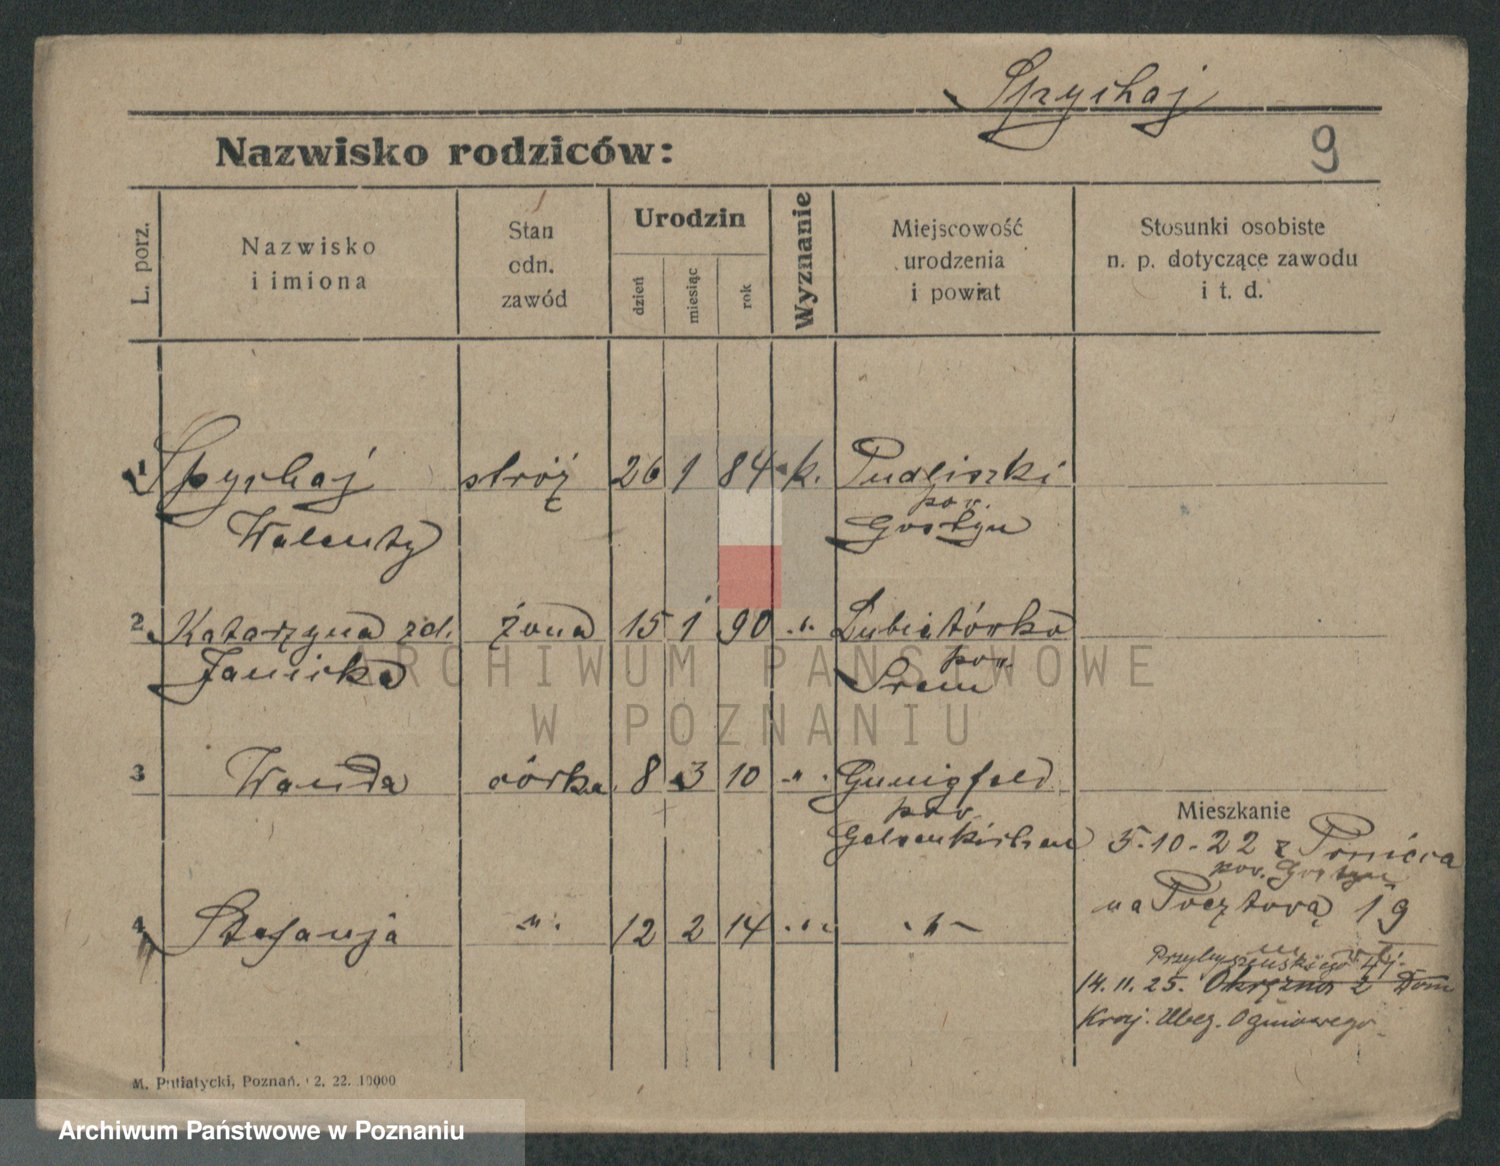 Spychaj
Nazwisko rodziców:
9
L. porz.
Nazwisko
i imiona
Stan
odn.
zawód
Urodzin
dzień
miesiąc
rok
Wyznanie
Miejscowość
urodzenia
i powiat
Stosunki osobiste
n. p. dotyczące zawodu
i t. d.
1 Spychaj stróż 26 1 84 k. Pudliszki
pow.
Walenty Gostyn
2 Katarzyna zd. żona 15 1 90 „ Lubiatówko
pow.
Janicka Śrem
3 Wanda córka 8 3 10 „
pow.
Gelsenkirchen
4 Stefanja „ 12 2 14 „ „
Mieszkanie
5.10.22 z
pow. Gostyn
na Pocztową 19
Przybyszewskiego
14.11.25. Okrężna 2 Dom
Kraj. Ubez. Ogniowego
M. Putiatycki, Poznań. 2. 22. 10000
ARCHIWUM PAŃSTWOWE
W POZNANIU
Archiwum Państwowe w Poznaniu